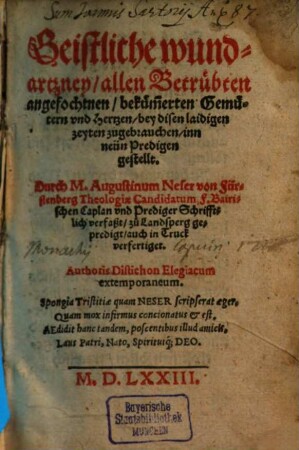 Sum Joannis Sartorij A 87
Geistliche wund-
artzney / allen Betrübten
angefochtnen / bekümerten Gemü-
tern vnd Hertzen / bey disen laidigen
zeyten zugebrauchen / inn
neün Predigen
gestellt.
Durch M. Augustinum Neser von Für-
stenberg Theologiæ Candidatum, F. Bairi-
schen Caplan vnd Prediger Schrifft-
lich verfaßt / zů Landsperg ge-
predigt / auch in Truck
verfertiget.
Monachij
Authoris Distichon Elegiacum
extemporaneum.
Spongia Tristitiæ quam NESER scripserat æger,
Quam mox infirmus concionatus & est,
AEdidit hanc tandem, poscentibus illud amicis,
Laus Patri, Nato, Spirituiq; DEO.
M. D. LXXIII.
Bayerische
Staatsbibliothek
MÜNCHEN